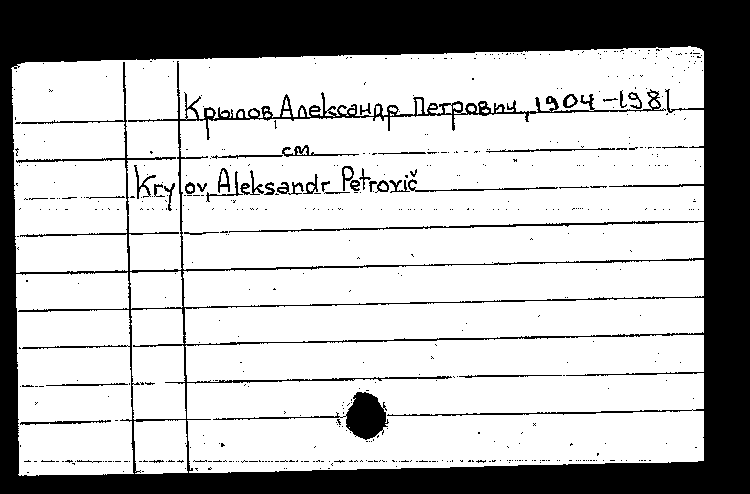 Крылов, Александр Петрович, 1904-1981
см.
Krylov, Aleksandr Petrovič